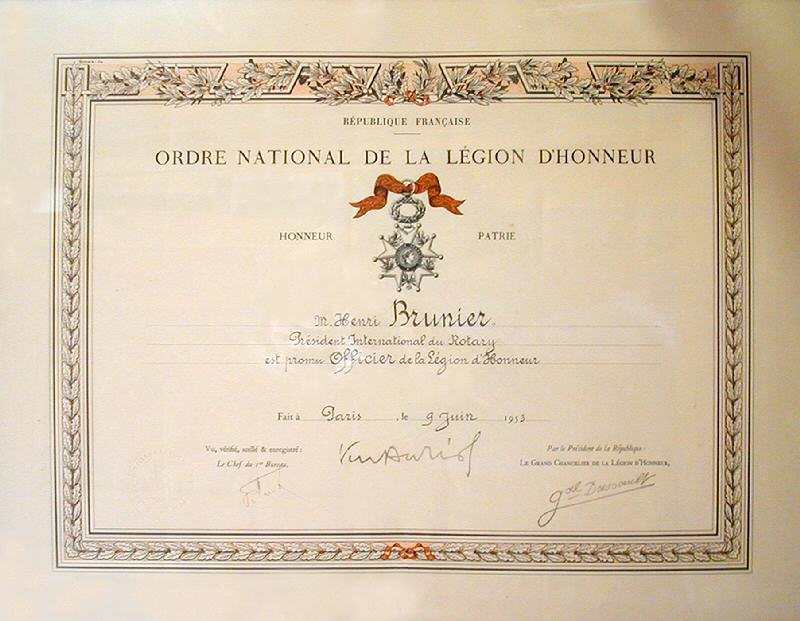 RÉPUBLIQUE FRANÇAISE
ORDRE NATIONAL DE LA LÉGION D'HONNEUR
HONNEUR PATRIE
M. Henri Brunier,
Président International du Rotary
est promu Officier de la Légion d'Honneur
Fait à Paris, le 9 Juin 1953
Vu, vérifié, scellé & enregistré:
Le Chef du 1er Bureau,
Par le Président de la République:
LE GRAND CHANCELIER DE LA LÉGION D'HONNEUR,
Vin Auriol
gal Dassault